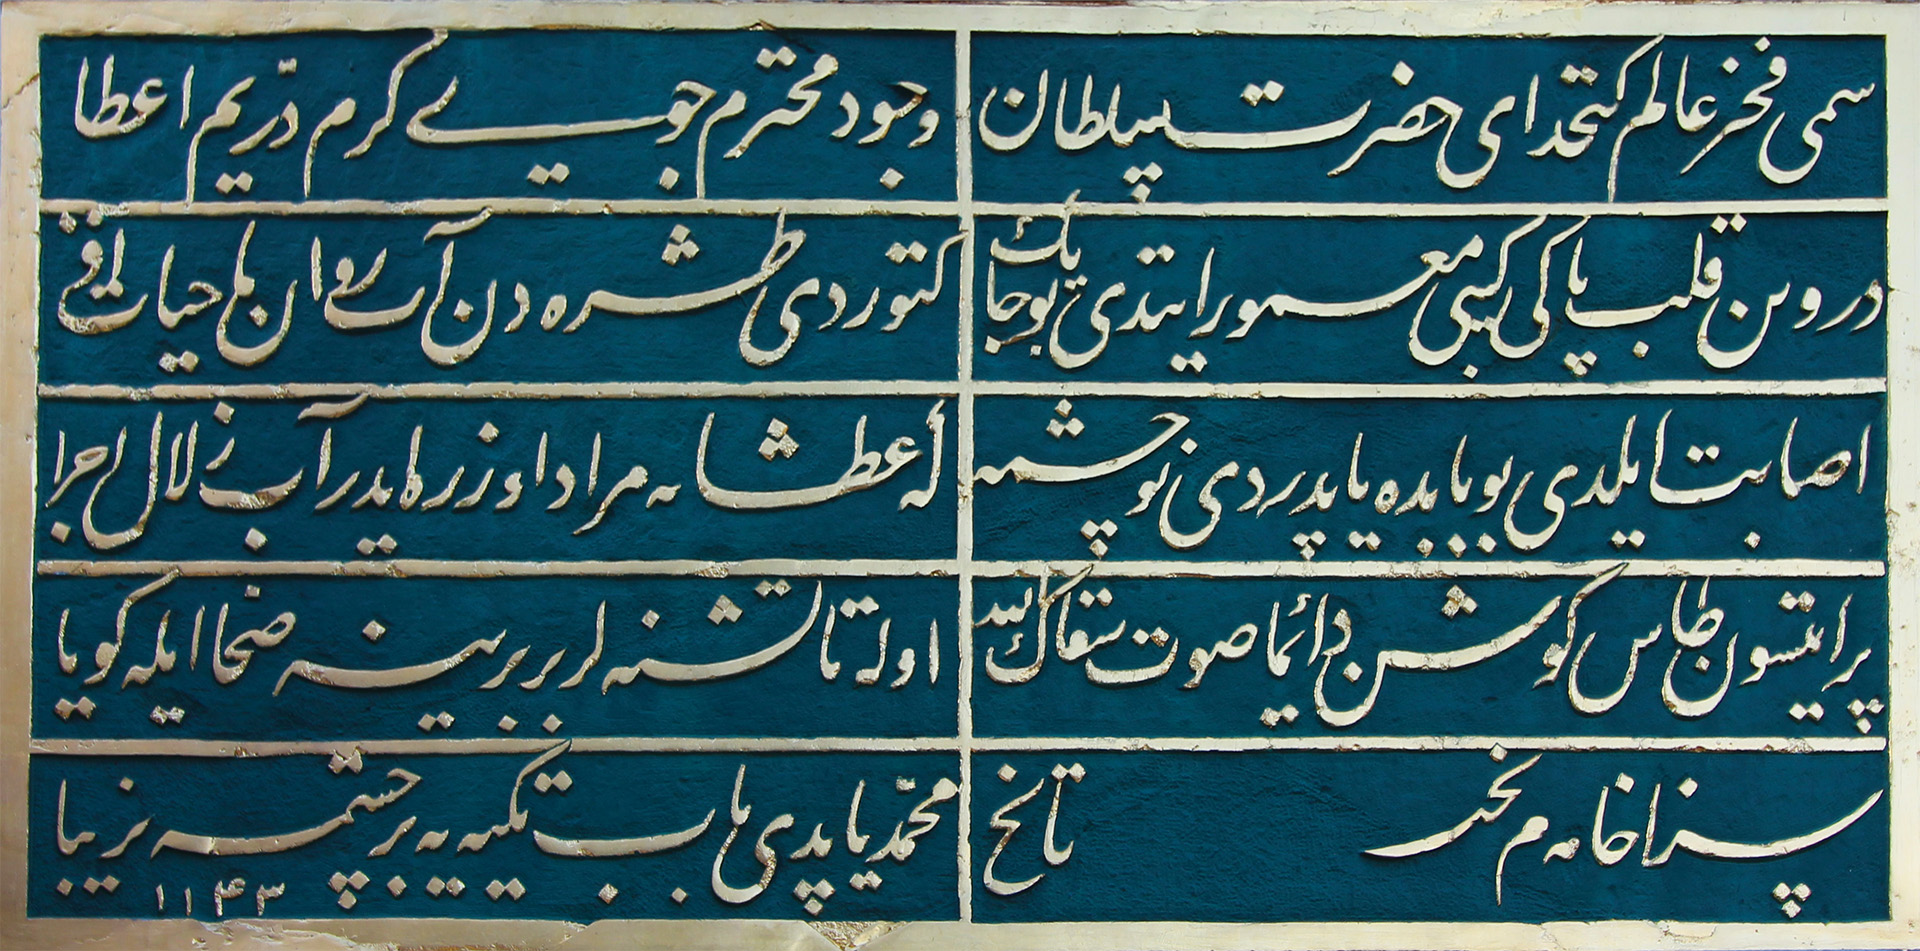 سمی فخر عالم کتخدای حضرت سلطان
وجود محترم جوی کرم دریم اعطا
درون قلب پاکی کبی معمور ایتدی بو جایک
کتوردی طشره دن آب روان بل حیات افزا
اصابت ایلدی بو بابده یاپدردی نو چشمه
که عطشانه مراد اوزره ایدر آب زلال اجرا
پر ایتسون طاس گوشن دائما صوت سقاک الله
اوله تا تشنه لر بر برینه صحا ایله گویا
سزا خامه م تاریخ
محمّد یاپدی باب تکیه یه بر چشمه زیبا
۱۱۴۳